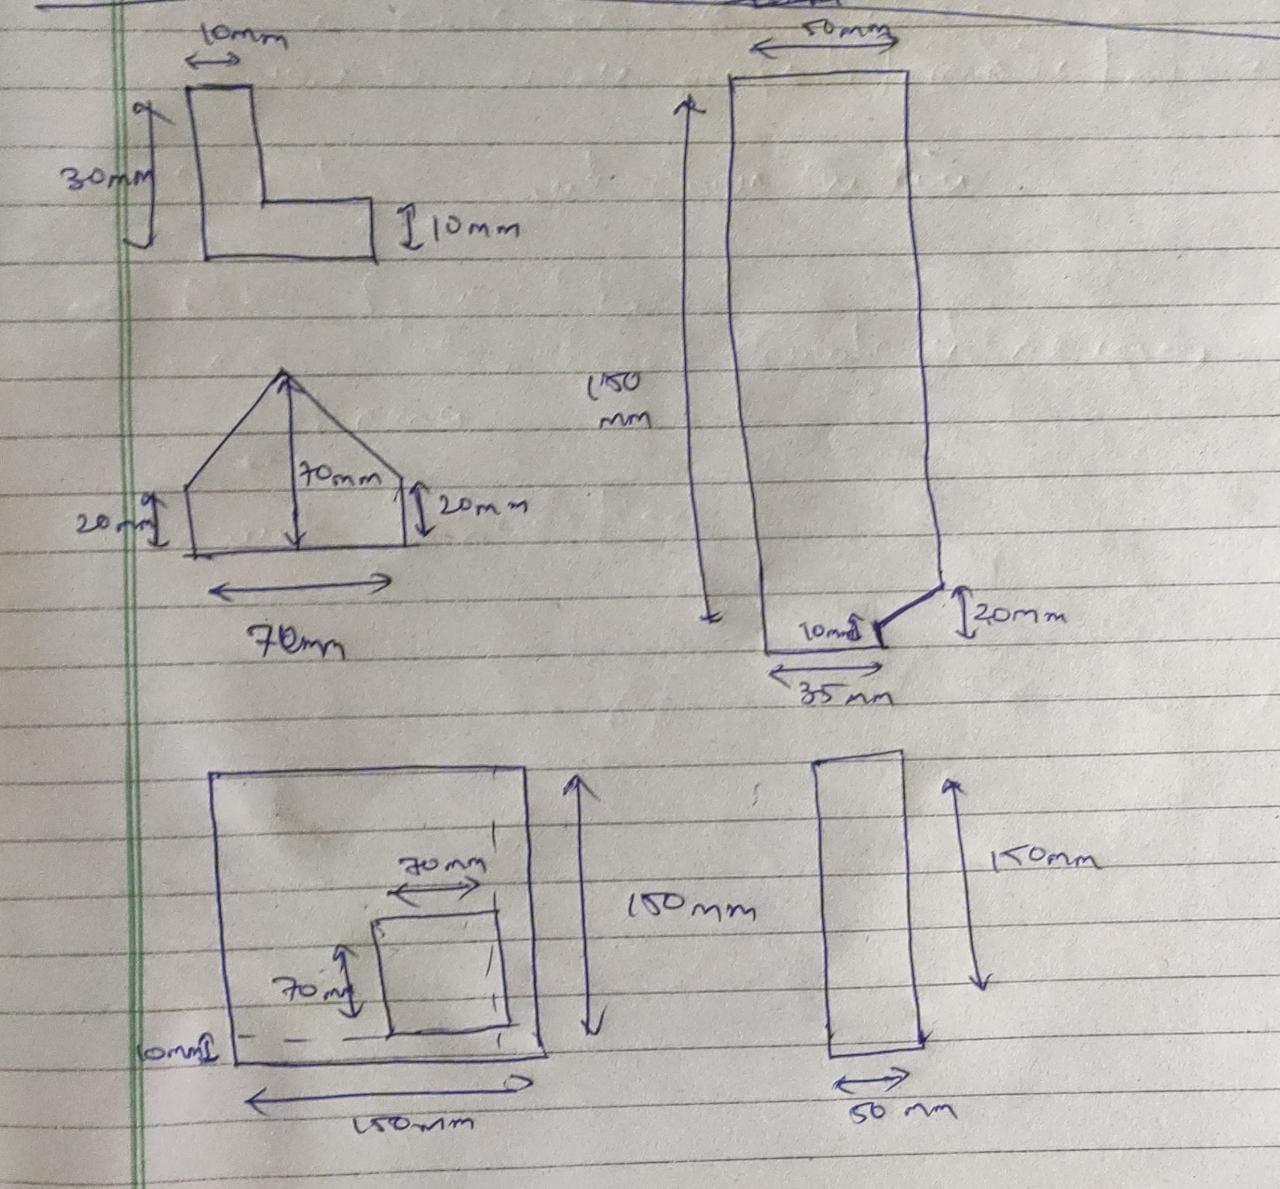 10mm
30mm
10mm
70mm
20mm
20mm
70mm
50mm
150
mm
10mm
20mm
35mm
70mm
70m
150mm
10mm
150mm
150mm
50mm